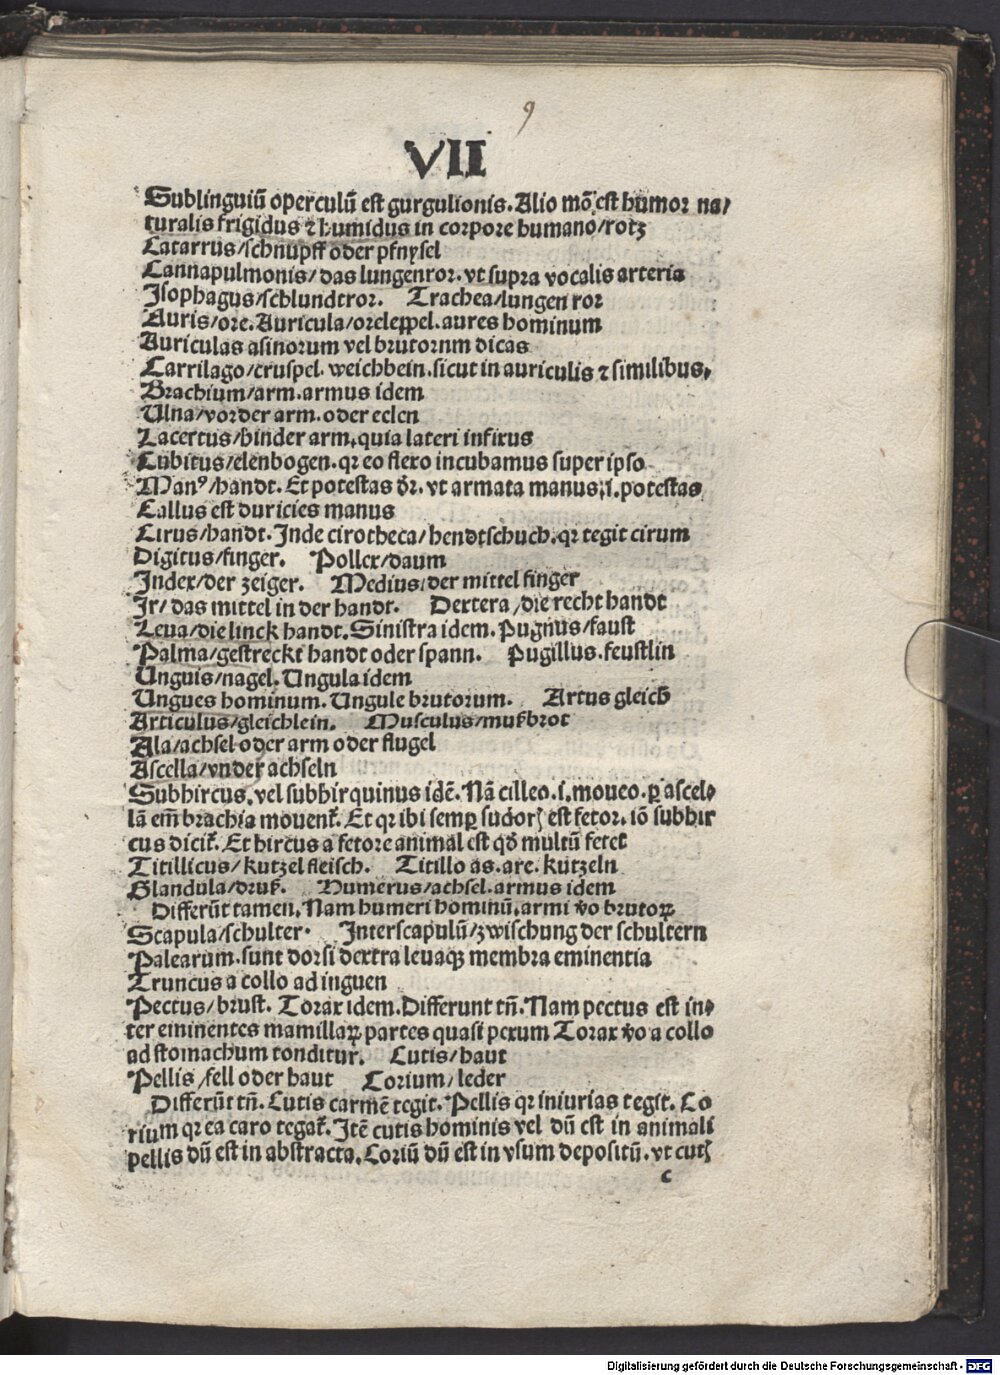 9
VII
Sublinguiū operculū est gurgulionis. Alio mō est humor na/
turalis frigidus ⁊ humidus in corpore humano/rotz
Catarrus/schnupff oder pfnysel
Cannapulmonis/das lungenror. vt supra vocalis arteria
Isophagus/schlundtror. Trachea/lungen ror
Auris/ore. Auricula/oreleppel. aures hominum
Auriculas asinorum vel brutornm dicas
Carrilago/cruspel. weichbein. sicut in auriculis ⁊ similibus.
Brachium/arm. armus idem
Ulna/vorder arm. oder eelen
Lacertus/hinder arm. quia lateri infixus
Cubitus/elenbogen. qꝛ eo flexo incubamus super ipso
Manꝰ/handt. Et potestas dr̄. vt armata manus. i. potestas
Callus est duricies manus
Cirus/handt. Inde cirotheca/hendtschuch. qꝛ tegit cirum
Digitus/finger. Pollex/daum
Index/der zeiger. Medius/der mittel finger
Ir/das mittel in der handt. Dextera/die recht handt
Leua/die linck handt. Sinistra idem. Pugnus/faust
Palma/gestreckt handt oder spann. Pugillus. feustlin
Unguis/nagel. Ungula idem
Ungues hominum. Ungule brutorum. Artus gleich
Articulus/gleichlein. Musculus/mußbrot
Ala/achsel oder arm oder flugel
Ascella/vnder achseln
Subhircus. vel subhirquinus idē. Nā cilleo. i. moueo. ꝑ ascel/
lā em̄ brachia mouent᷑. Et qꝛ ibi semꝑ sudoꝝ est fetor. iō subhir
cus dicit᷑. Et hircus a fetore animal est qd̄ multū fetet
Titillicus/kutzel fleisch. Titillo as. are. kutzeln
Glandula/druß. Humerus/achsel. armus idem
Differūt tamen. Nam humeri hominū. armi v̄o brutoꝝ
Scapula/schulter. Interscapulū/zwischung der schultern
Palearum. sunt dorsi dextra leuaqꝫ membra eminentia
Truncus a collo ad inguen
Pectus/brust. Torax idem. Differunt tn̄. Nam pectus est in/
ter eminentes mamillaꝝ partes quasi pexum Torax v̄o a collo
ad stomachum tonditur. Cutis/haut
Pellis/fell oder haut Corium/leder
Differūt tn̄. Cutis carmē tegit. Pellis qꝛ iniurias tegit. Co
rium qꝛ ea caro tegat᷑. Itē cutis hominis vel dū est in animali
pellis dū est in abstracta. Coriū dū est in vsum depositū. vt cutꝭ
c
Digitalisierung gefördert durch die Deutsche Forschungsgemeinschaft - DFG